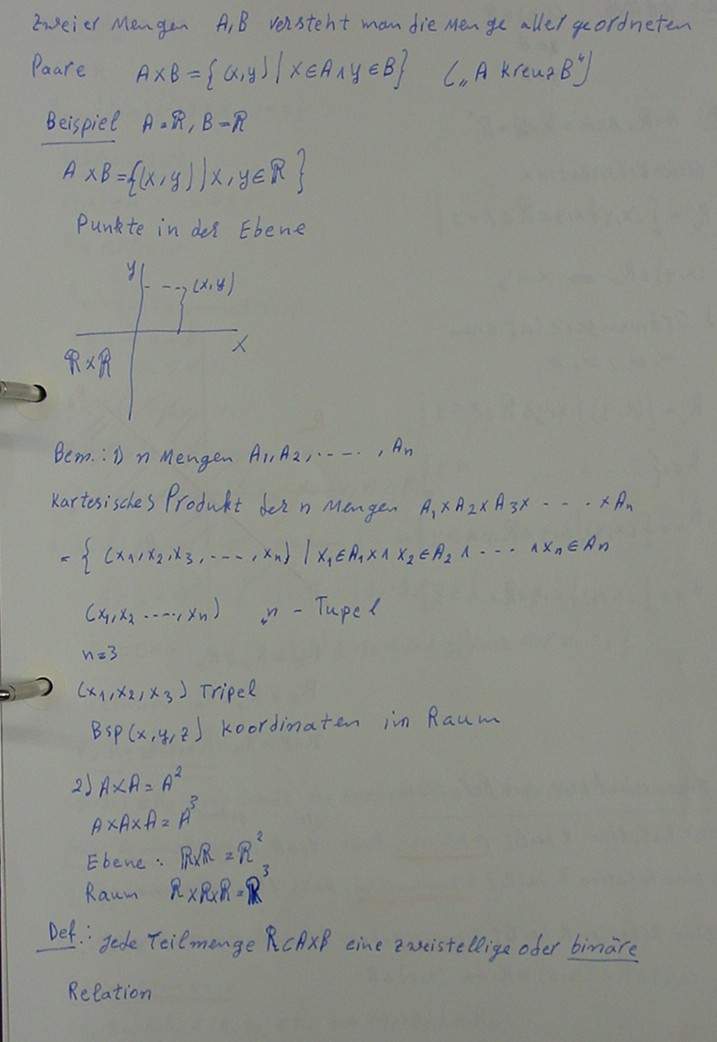 zweier Mengen A,B versteht man die Menge aller geordneten
Paare A×B = {(x,y) | x∈A ∧ y∈B} („A Kreuz B“)
Beispiel A=ℝ, B=ℝ
A×B={(x,y) | x,y∈ℝ}
Punkte in der Ebene
y
(x,y)
x
ℝ×ℝ
Bem.: 1) n Mengen A₁,A₂,....., Aₙ
Kartesisches Produkt der n Mengen A₁×A₂×A₃×....×Aₙ
= { (x₁,x₂,x₃,....,xₙ) | x₁∈A₁×∧ x₂∈A₂ ∧ .... ∧xₙ∈Aₙ
(x₁,x₂ ....,xₙ) n - Tupel
n=3
(x₁,x₂,x₃) Tripel
Bsp (x,y,z) Koordinaten im Raum
2) A×A = A²
A×A×A = A³
Ebene : ℝ×ℝ = ℝ²
Raum ℝ×ℝ×ℝ=ℝ³
Def.: Jede Teilmenge R⊂A×B eine zweistellige oder binäre
Relation